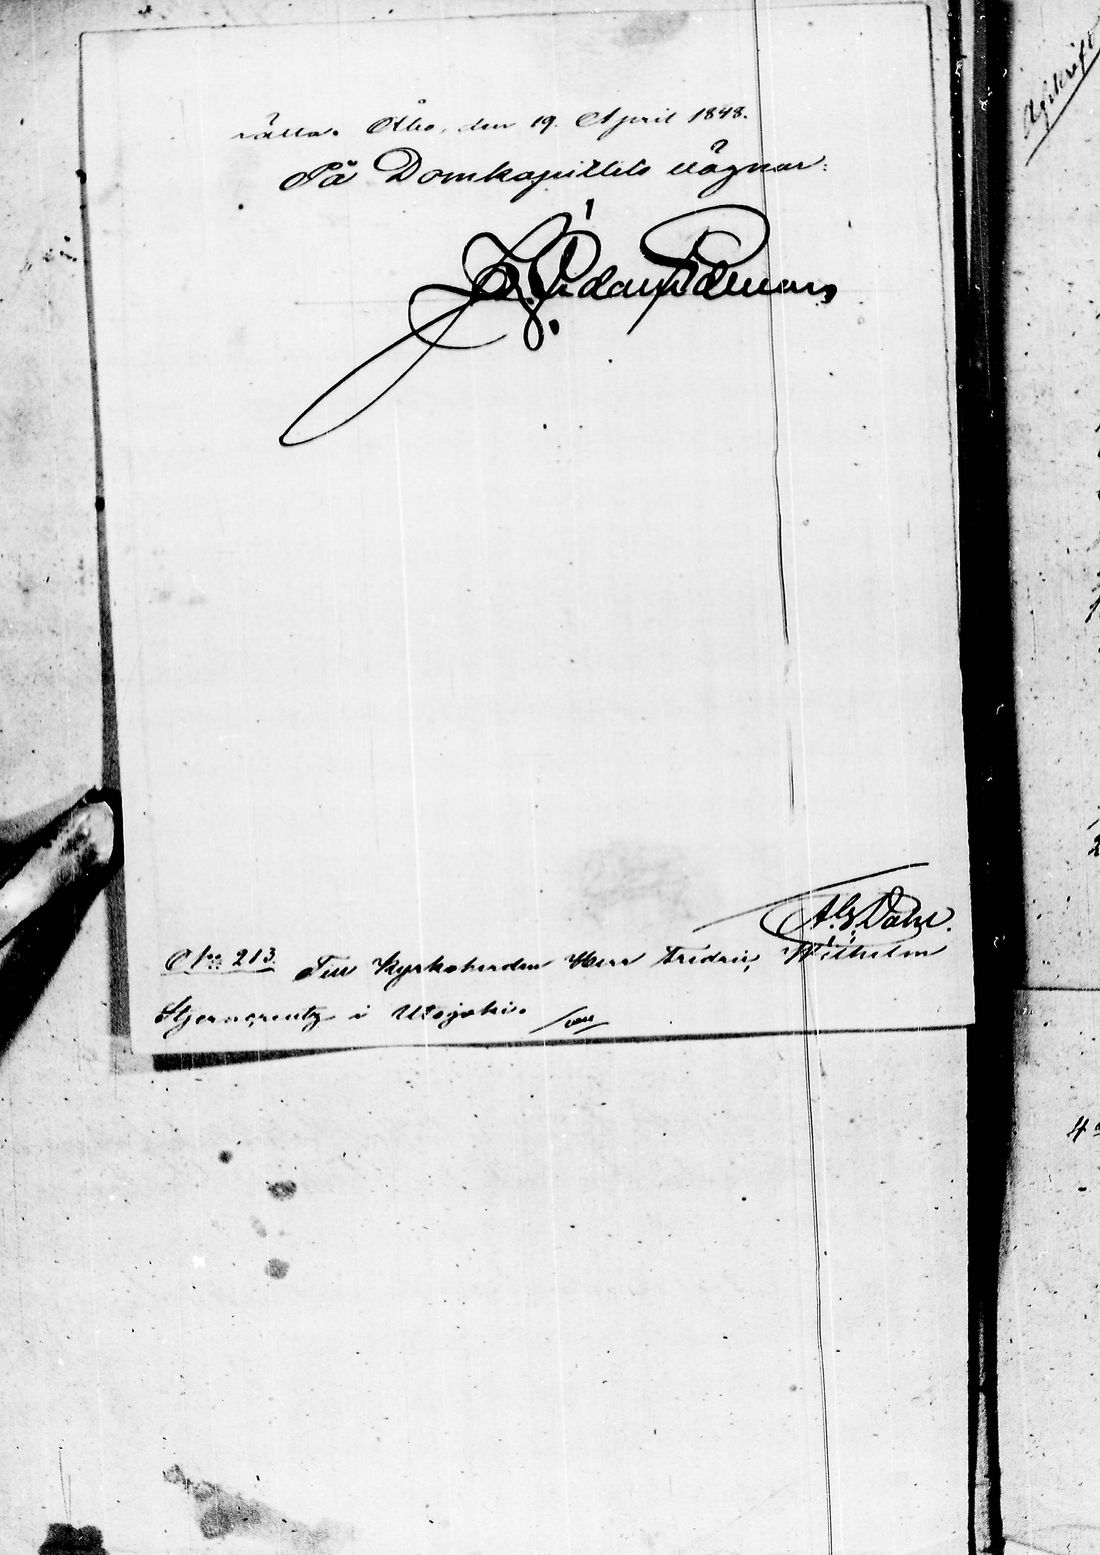 rätta. Åbo, den 19. April 1848.
På Domkapitlets vägnar:
A. G. Dahl.
No 213. Till Kyrkoherden Herr Fredric Wilhelm
Stjerncreutz i Utsjoki.
Afskrift